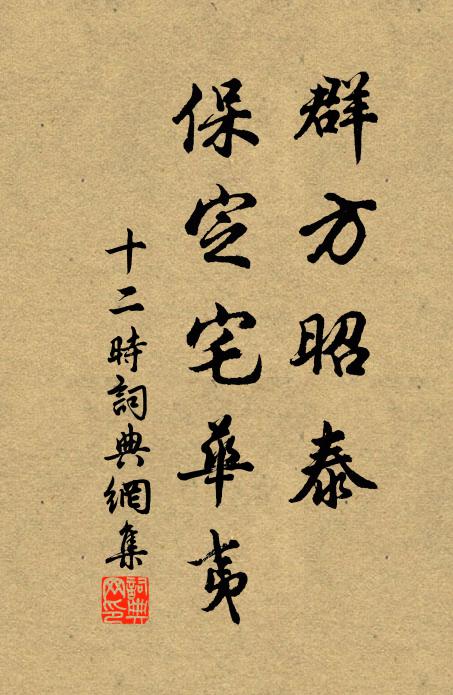 群方昭泰
保定宅華夷
十二時詞典網集
詞典网印